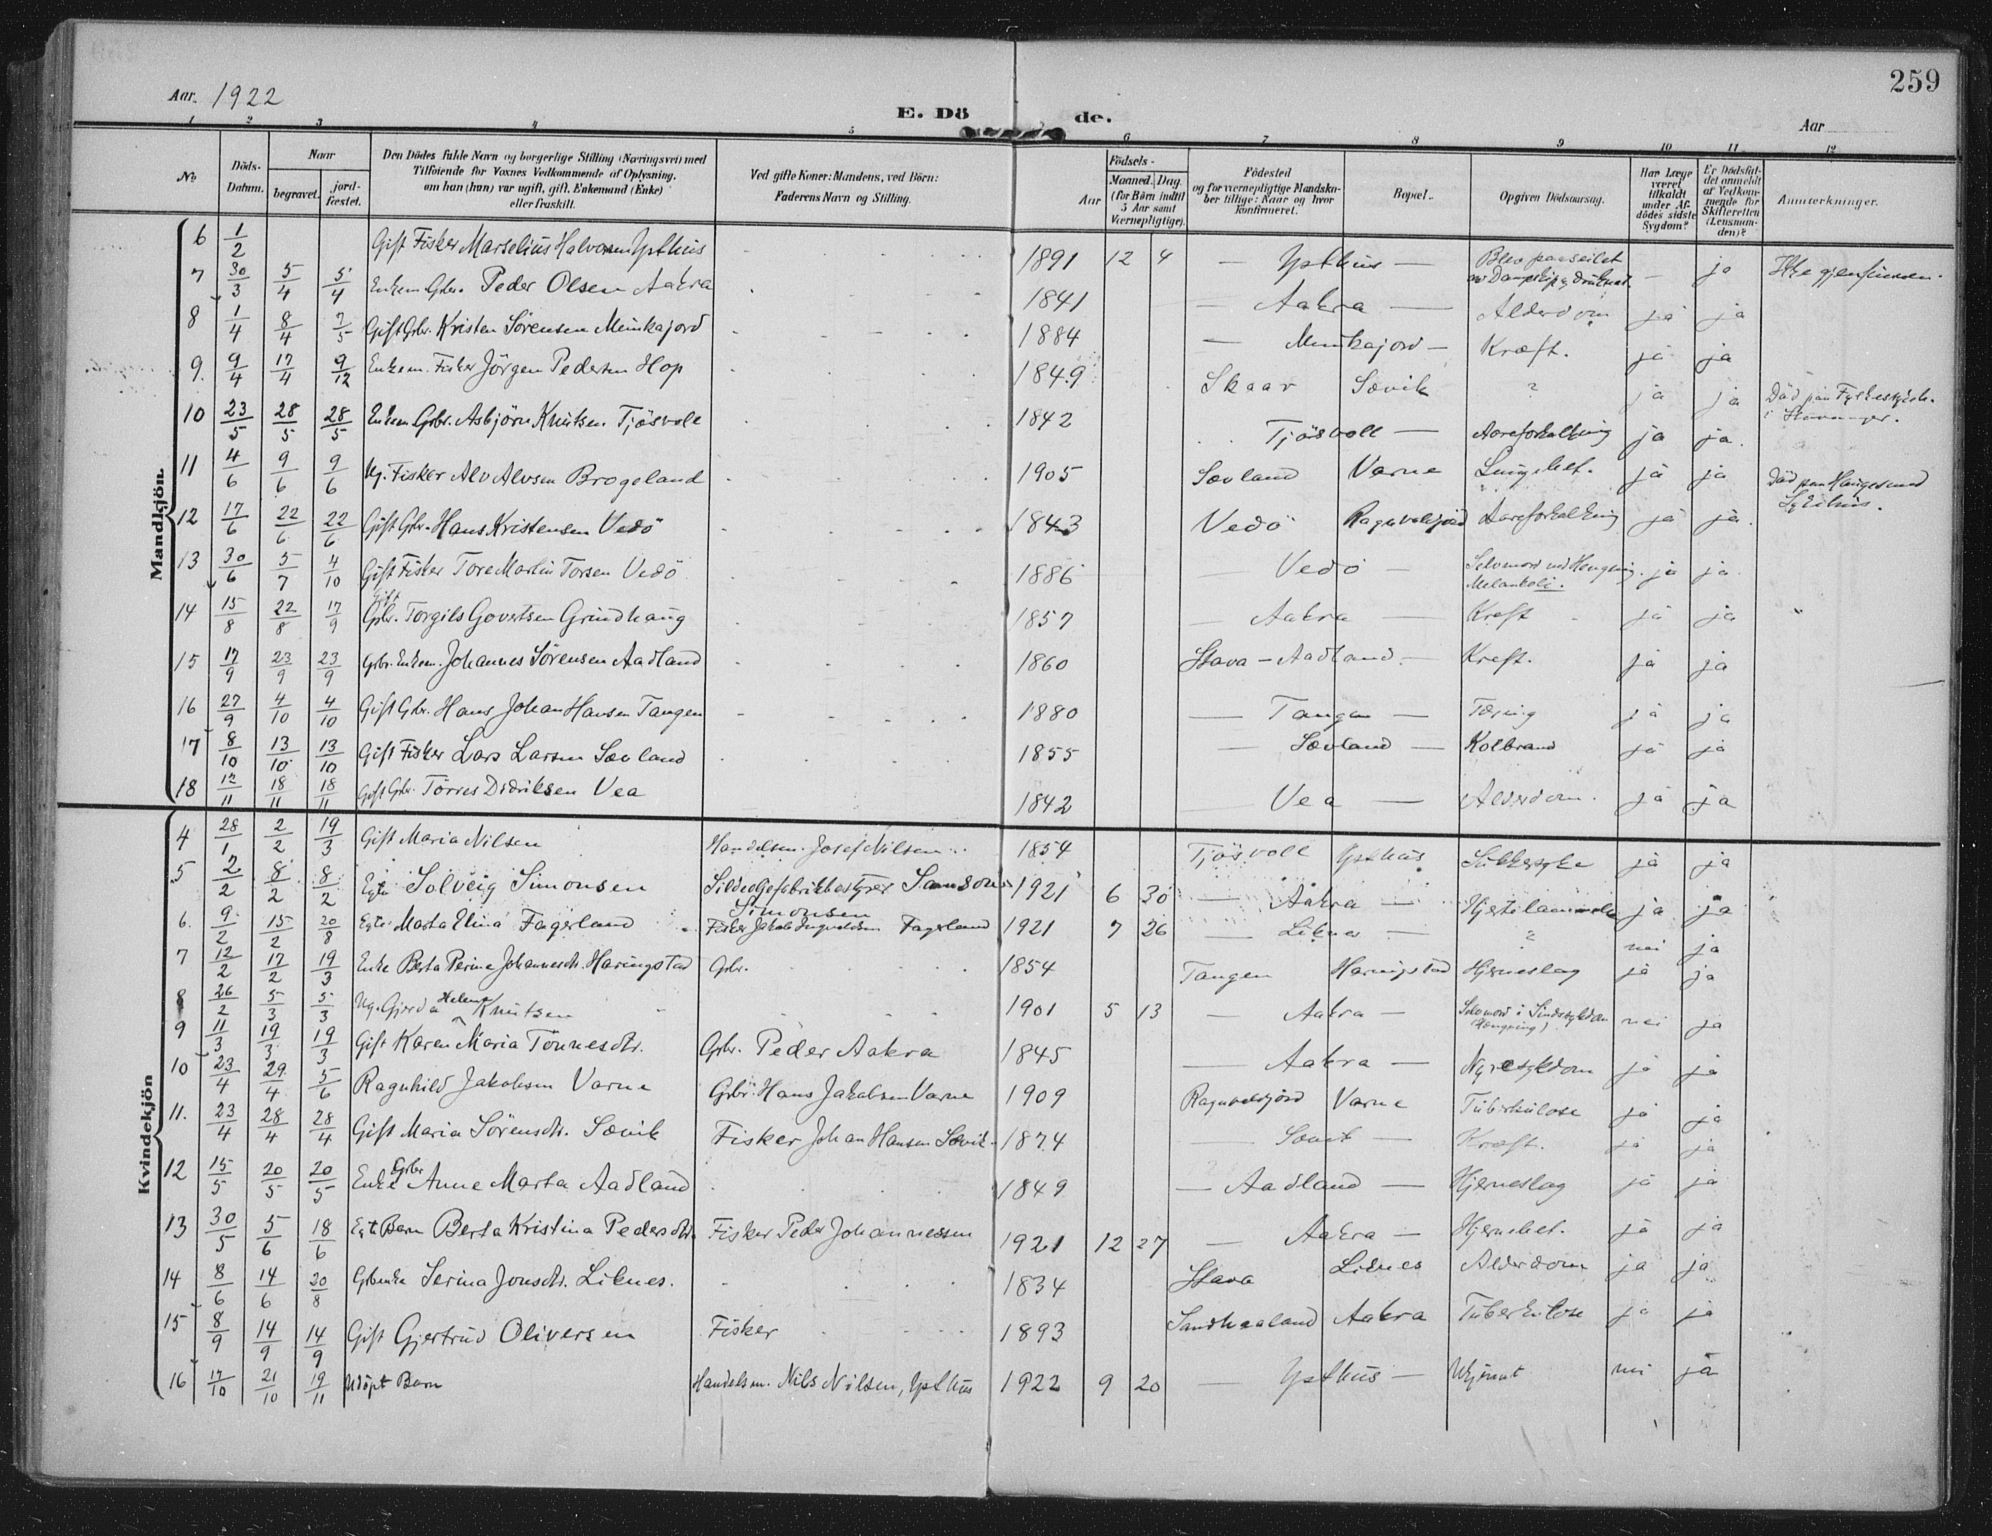 259
Aar. 1922
E. Dö de.
Aar
1 2 3 4 5 6 7 8 9 10 11 12
No
Döds-Datum.
Naar
begravet.
jord-fæstet.
Den Dödes fulde Navn og borgerlige Stilling (Næringsvei) med
Tilföiende for Voxnes Vedkommende af Oplysning,
om han (hun) var ugift, gift, Enkemand (Enke)
eller fraskilt.
Ved gifte Koner: Mandens, ved Börn:
Faderens Navn og Stilling.
Födsels-
Aar
Maaned. Dag.
(for Börn indtil
5 Aar samt
Værnepligtige).
Födested
og for værnepligtige Mandska-
ber tillige: Naar og hvor
konfirmeret.
Bopæl.
Opgiven Dödsaarsag.
Har Læge
været
tilkaldt
under Af-
dödes sidste
Sygdom?
Er Dödsfal-
det anmeldt
af Vedkom-
mende for
Skifteretten
(Lensman-
den)?
Anmerkninger.
Mandkjön.
6 1/2 Gift Fisker Marselius Halvorsen Ypthus 1891 12 4 — Ypthus — Blev paaseilet av Dampskip og druknet — ja Ikke gjenfunnen.
7 30/3 5/4 5/4 Enkem Gbr. Peder Olsen Aakra 1841 — Aakra — Alderdom ja ja
8 1/4 8/4 7/5 Gift Gbr. Kristen Sörensen Munkajord 1884 — Munkajord — Kræft. ja ja
9. 9/4 17/4 9/12 Enkem. Fisker Jörgen Pedersen Hop 1849 Skaar Sævik ? ja ja Död paa Fylkessykeh. i Stavanger.
10 23/5 28/5 28/5 Enkem Gbr. Asbjörn Knutsen Tjösvoll 1842 Tjösvoll — Aareforkalkning ja ja.
11 4/6 9/6 9/6 Ug. Fisker Alv Alvsen Brogeland 1905 Sævland Varne Lungebet. ja ja Död paa Haugesund Sykehus.
12 17/6 22/6 22/6 Gift Gbr. Hans Kristensen Vedö 1843 Vedö Ragnvaldsjord Aareforkalkning ja ja.
13 30/6 5/7 4/10 Gift Fisker Tore Martin Torsen Vedö 1886 — Vedö — Selvmord ved Hengning. Melankoli. ja ja
14 15/8 22/8 17/9 Gift Gbr. Torgils Govertsen Grindhaug 1857 — Aakra — Kreft ja ja
15 17/9 23/9 23/9 Gbr. Enkem. Johannes Sörensen Aadland 1860 Stava — Aadland. — Kreft. ja ja
16 27/9 4/10 4/10 Gift Gbr. Hans Johan Hansen Tangen 1880 — Tangen — Tæring ja ja
17 8/10 13/10 13/10 Gift Fisker Lars Larsen Sævland 1855 — Sævland — Kolbrand ja ja
18 12/11 18/11 18/11 Gift Gbr. Törres Didriksen Vea 1842 — Vea — Alderdom. ja ja
Kvindekjön
4 28/1 2/2 19/3 Gift Maria Nilsen Handelsm. Josef Nilsen 1854 Tjösvoll Ypthus Sukkersyke ja ja
5 2/2 8/2 8/2 Egte Solveig Simonsen Sildeoljefabrikkbestyrer Samson Simonsen 1921 6 30 — Aakra — Hjertelammelse ja ja
6. 9/2 15/2 20/8 Egte Marta Elina Fagerland Fisker Jakob Ingvaldsen Fagerland 1921 7 26 — Liknes — ? nei ja
7 12/2 17/2 19/3 Enke Berta Perine Johannesdtr. Haringstad Gbr. 1854 Tangen Haringstad Hjerneslag ja ja
8 26/2 5/3 5/3 Ug. Gjerda Helene Knutsen 1901 5 13 — Aakra — Selvmord i Sindssykdom (Hengning) nei ja
9 11/3 19/3 19/3 Gift Karen Maria Tönnesdtr. Gbr. Peder Aakra 1845 — Aakra — Nyresykdom ja ja
10 23/4 29/4 5/6 Ragnhild Jakobsen Varne Gbr. Hans Jakobsen Varne 1909 Ragnvaldsjord Varne Tuberkulose ja ja
11. 23/4 28/4 28/4 Gift Maria Sörensdtr. Sævik Fisker Johan Hansen Sævik. 1874 — Sævik — Kræft. ja ja
12 15/5 20/5 20/5 Enke Gbr Anne Marta Aadland 1849 — Aadland — Hjerneslag ja ja
13 30/5 5/6 18/6 Egte Barn Berta Kristina Pedersdtr. Fisker Peder Johannessen 1921 12 27 — Aakra — Hjernebet. ja ja
14 8/6 14/6 20/8 Gbenke Serina Jonsdtr. Liknes. 1834 Stava Liknes Alderdom ja ja
15 8/9 14/9 14/9 Gift Gjertrud Oliversen Fisker 1893 Sandhaaland Aakra Tuberkulose ja ja
16 17/10 21/10 19/11 Udöpt Barn Handelsm. Nils Nilsen, Ypthus 1922 9 20 — Ypthus — Ukjent nei ja